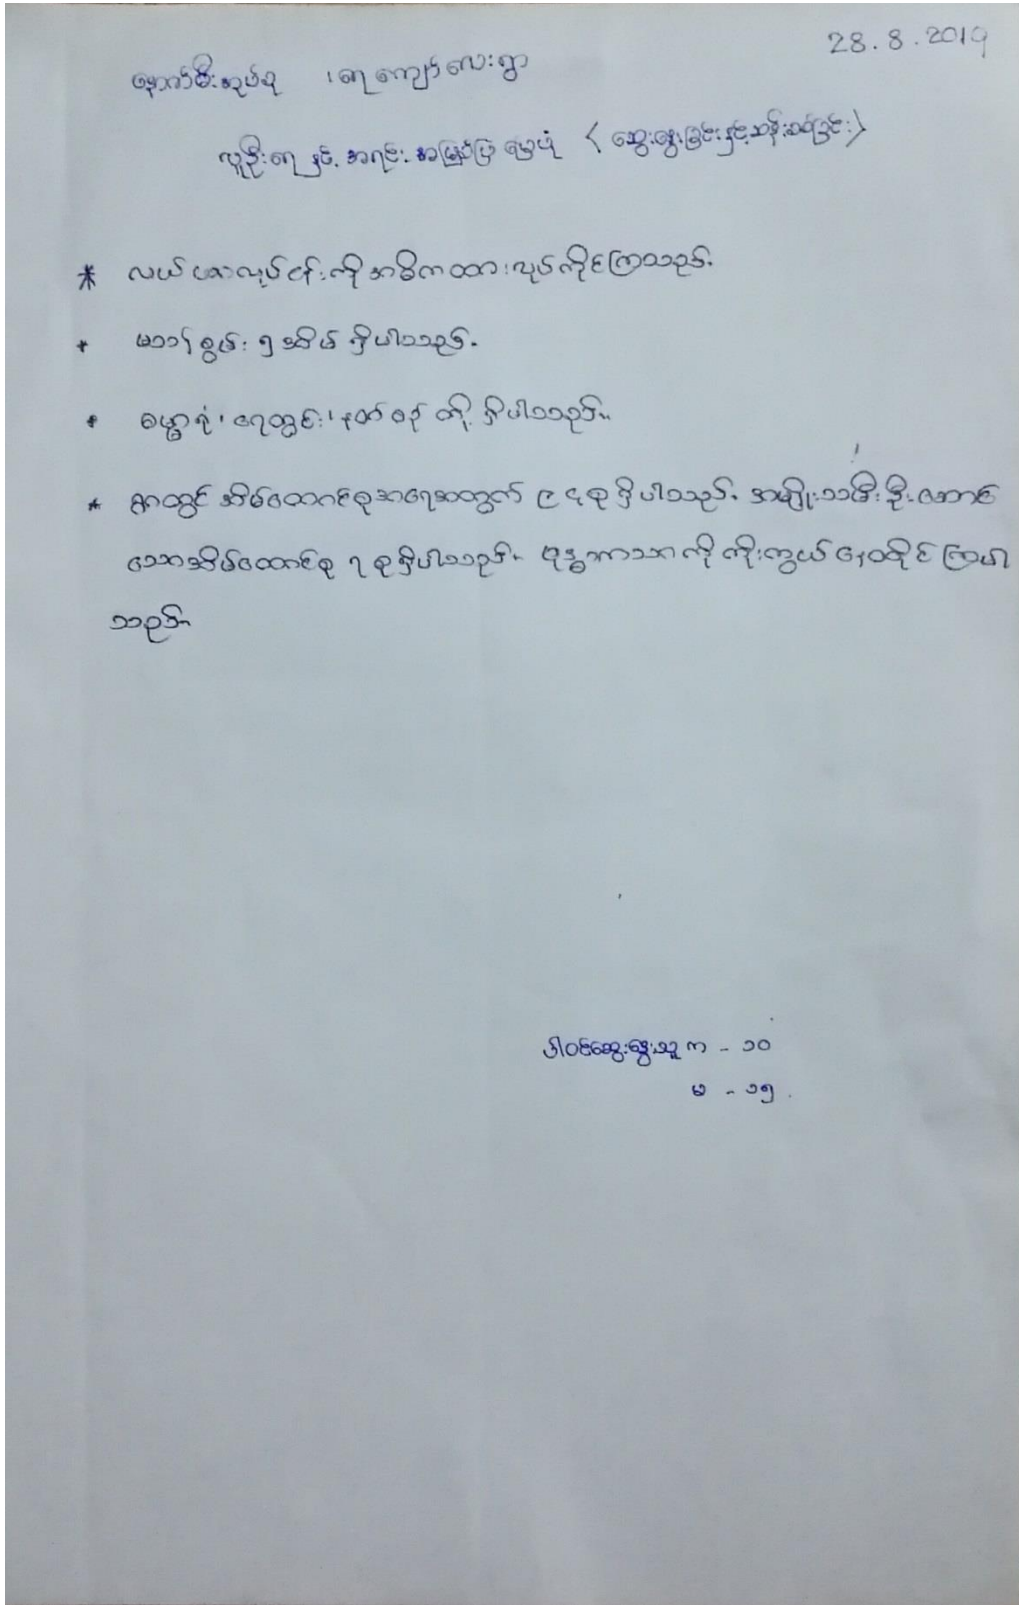 28.8.2019
နောက်မီးအုပ်စု ၊ ရေကျော်လေးရွာ
လူဦးရေ နှင့် အရင်းအမြစ်ပြ မြေပုံ (ဆွေးနွေးခြင်းနှင့်ဆန်းစစ်ခြင်း)
* လယ်ယာလုပ်ငန်းကို အဓိကထားလုပ်ကိုင်ကြသည်။
* မသန်စွမ်း ၅ အိမ် ရှိပါသည်။
* ဓမ္မာရုံ၊ ရေတွင်း၊ နတ်စင် တို့ ရှိပါသည်။
* ရွာတွင် အိမ်ထောင်စုအရေအတွက် ၉၄စု ရှိပါသည်။ အမျိုးသမီးဦးဆောင်
သောအိမ်ထောင်စု ၇ စုရှိပါသည်။ ဗုဒ္ဓဘာသာ ကို ကိုးကွယ် နေထိုင်ကြပါ
သည်။
ပါဝင်ဆွေးနွေးသူ က - ၁၀
မ - ၁၅